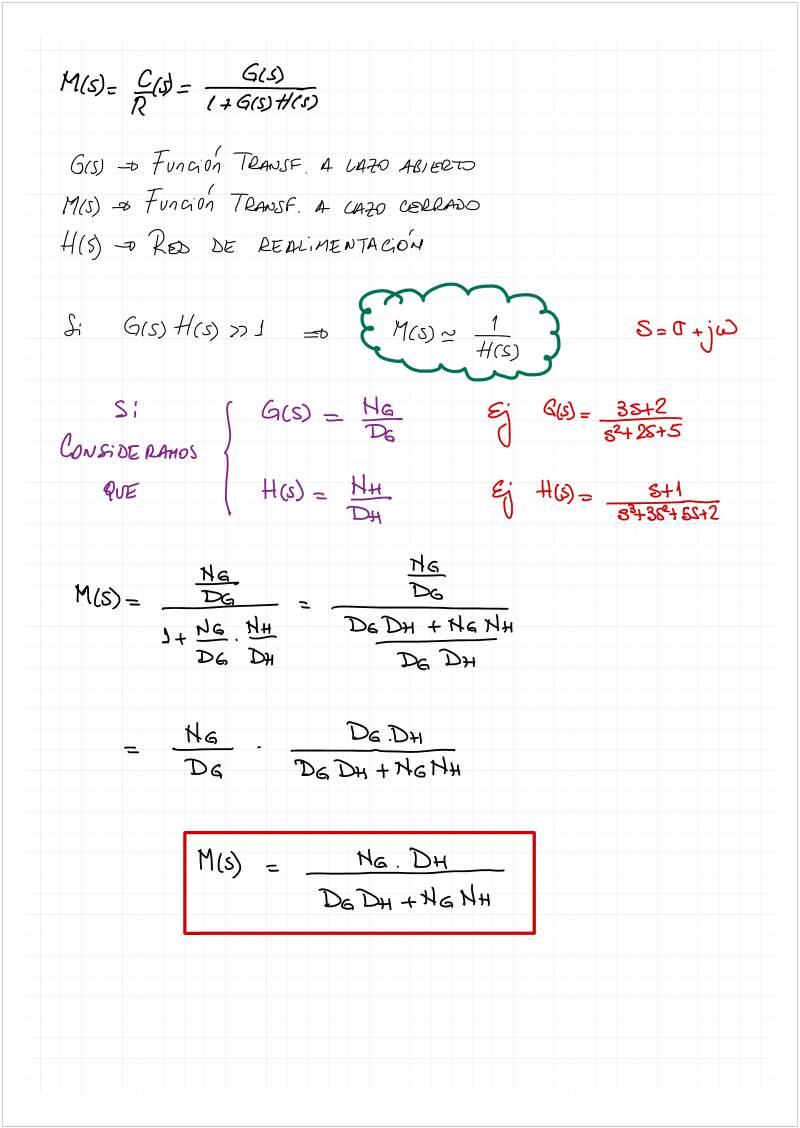 M(s) = C/R (s) = G(s) / (1 + G(s) H(s))
G(s) → Función TRANSF. A LAZO ABIERTO
M(s) → Función TRANSF. A LAZO CERRADO
H(s) → RED DE REALIMENTACIÓN
Si G(s) H(s) >> 1 ⇒ M(s) ≃ 1 / H(s) s = σ + jω
Si CONSIDERAMOS QUE
G(s) = NG / DG Ej G(s) = (3s+2) / (s²+2s+5)
H(s) = NH / DH Ej H(s) = (s+1) / (s³+3s²+5s+2)
M(s) = (NG/DG) / (1 + NG/DG . NH/DH) = (NG/DG) / ((DG DH + NG NH) / (DG DH))
= NG/DG . (DG . DH) / (DG DH + NG NH)
M(s) = (NG . DH) / (DG DH + NG NH)